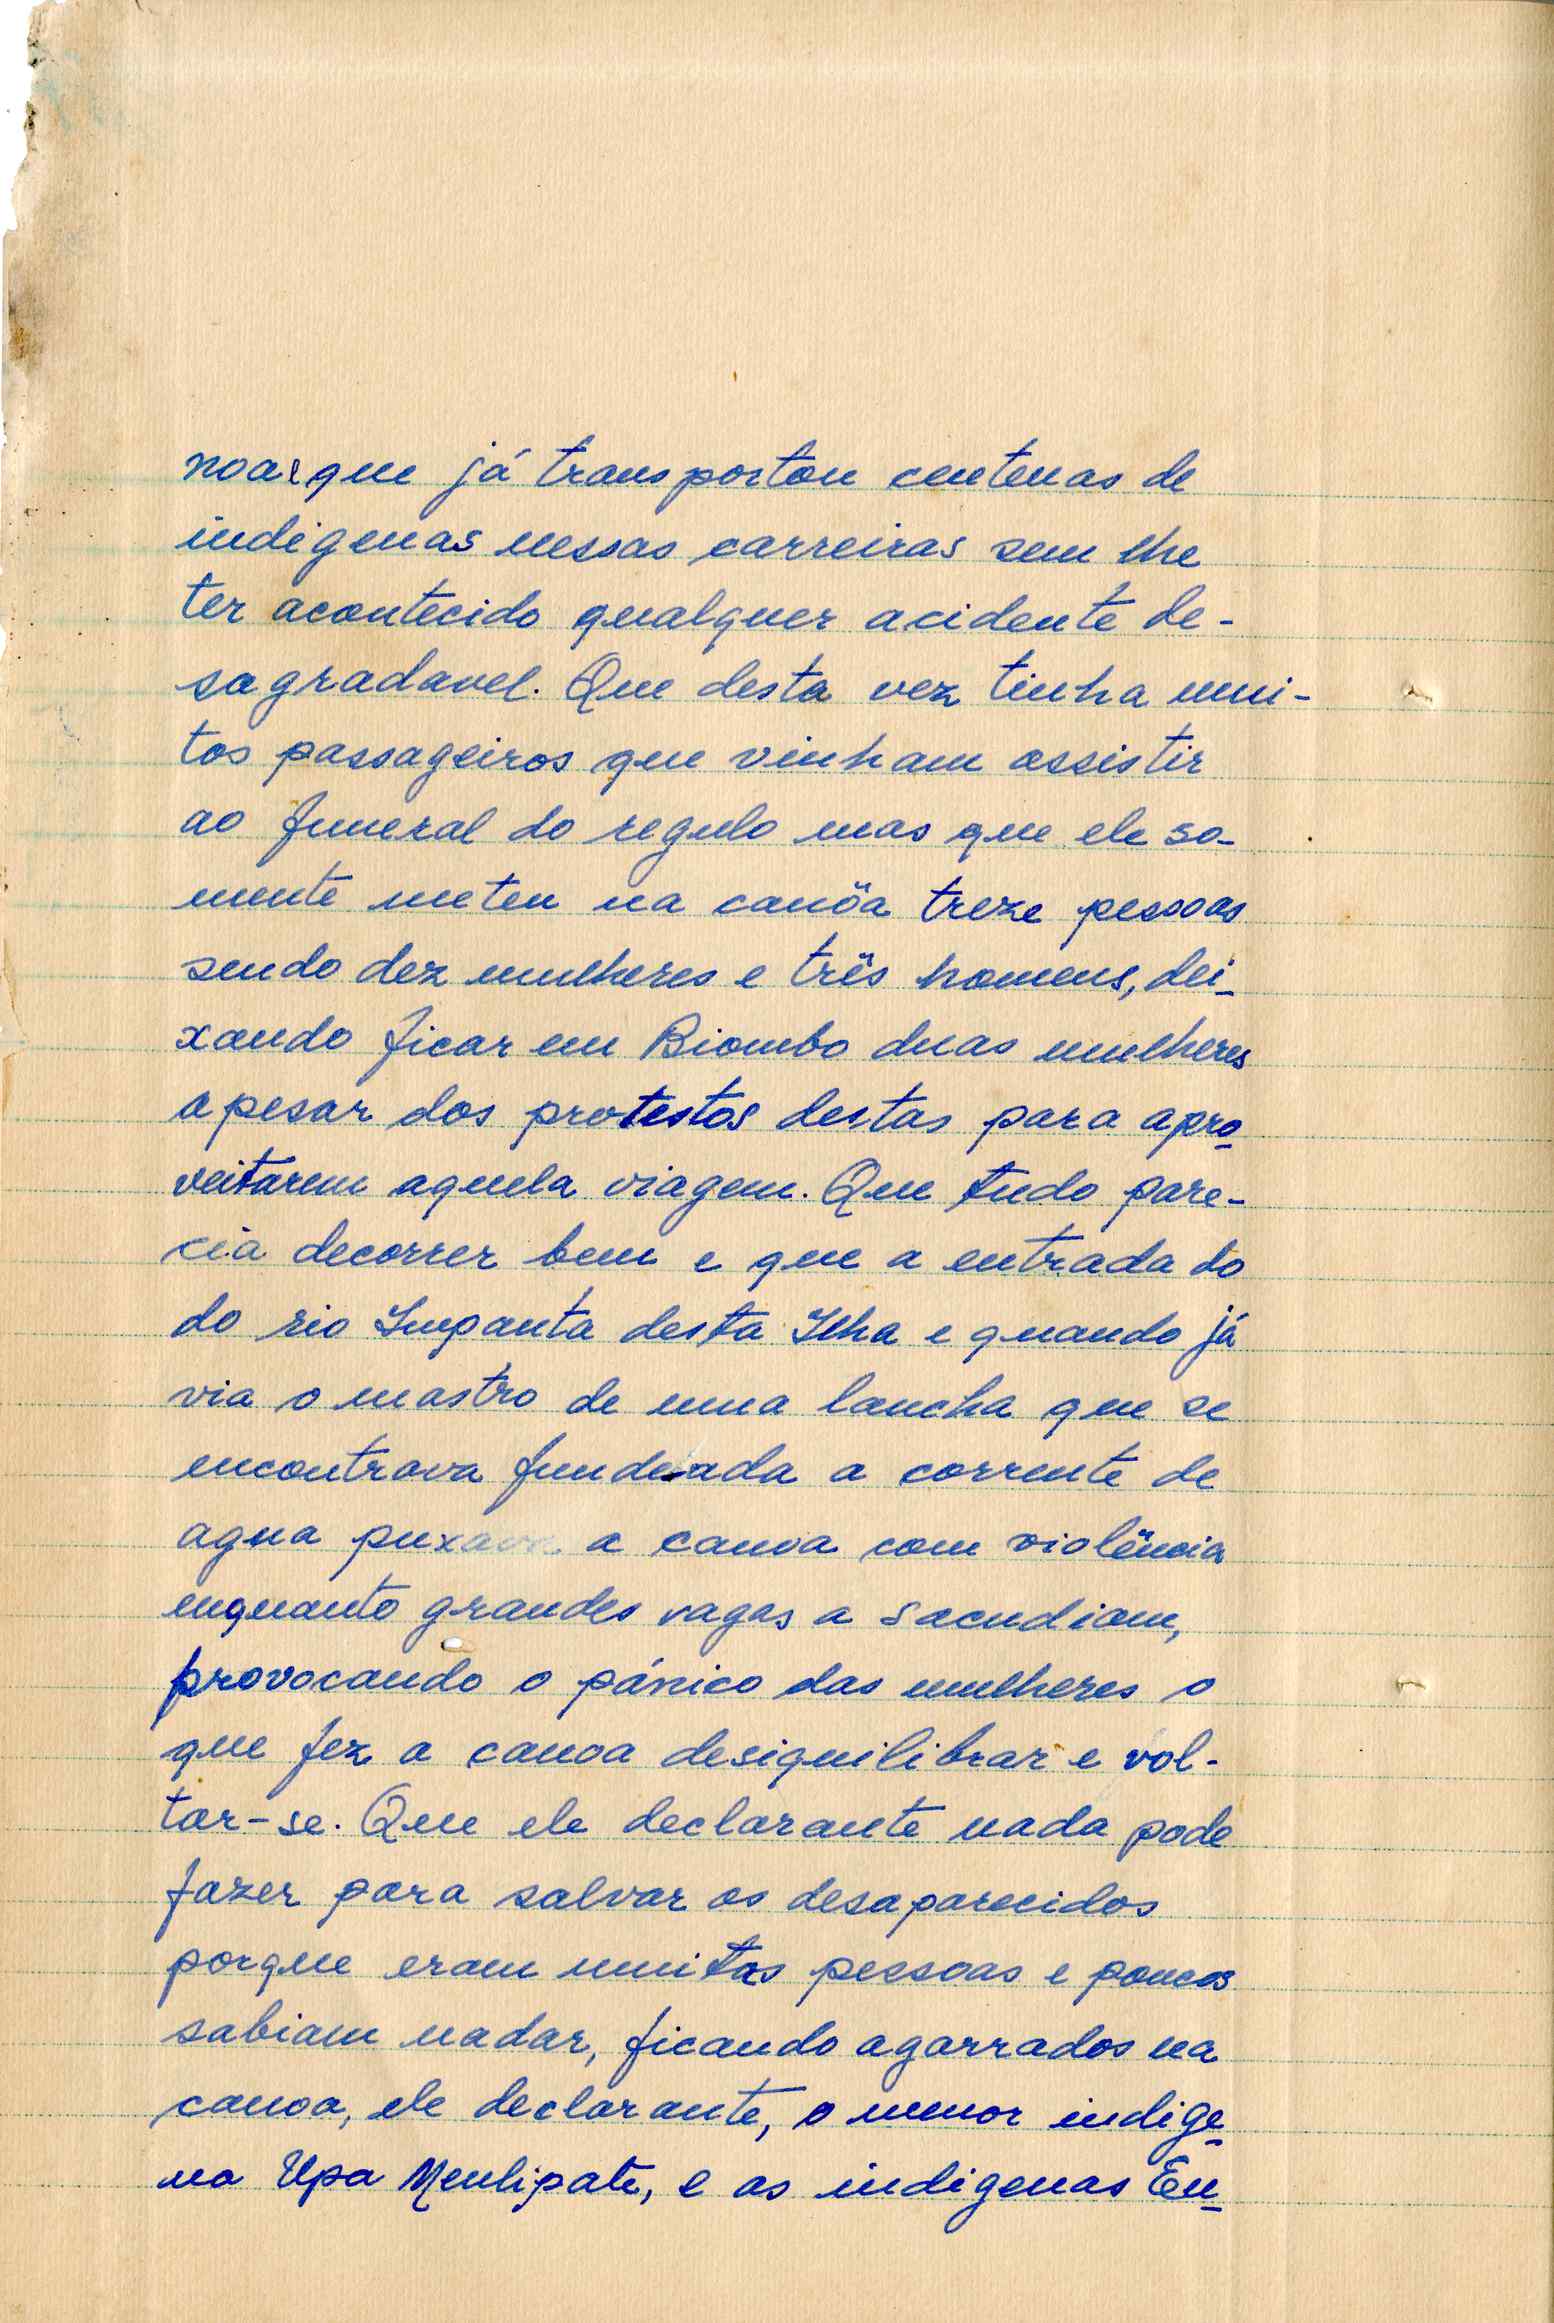 noa e que já transportou centenas de
indigenas nessas carreiras sem lhe
ter acontecido qualquer acidente de-
sagradavel. Que desta vez tinha mui-
tos passageiros que vinham assistir
ao funeral do regulo mas que ele so-
mente meteu na canôa treze pessoas
sendo dez mulheres e três homens, dei-
xando ficar em Biombo duas mulheres
apesar dos protestos destas para apro-
veitarem aquela viagem. Que tudo pare-
cia decorrer bem e que a entrada do
do rio Impanta desta Ilha e quando já
via o mastro de uma lancha que se
encontrava fundeada a corrente de
agua puxava a canoa com violência
enquanto grandes vagas a sacudiam,
provocando o pánico das mulheres o
que fez a canoa desiquilibrar e vol-
tar-se. Que ele declarante nada pode
fazer para salvar os desaparecidos
porque eram muitas pessoas e poucos
sabiam nadar, ficando agarrados na
canoa, ele declarante, o menor indige-
na Upa , e as indigenas En-